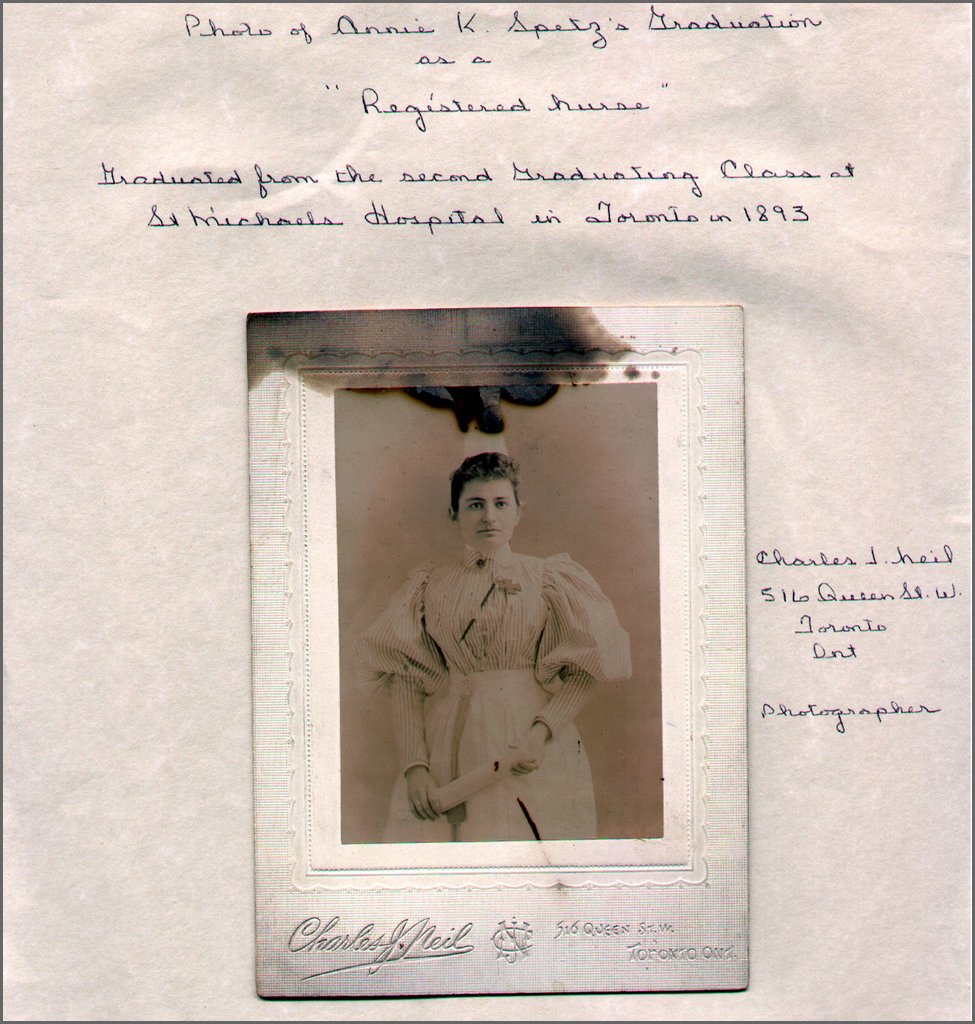 Photo of Annie K. Spetz's Graduation
as a
"Registered Nurse"
Graduated from the second Graduating Class at
St Michaels Hospital in Toronto in 1893
Charles J. Neil
516 Queen St. W.
Toronto
Ont
Photographer
Charles J. Neil
516 QUEEN ST. W.
TORONTO ONT.